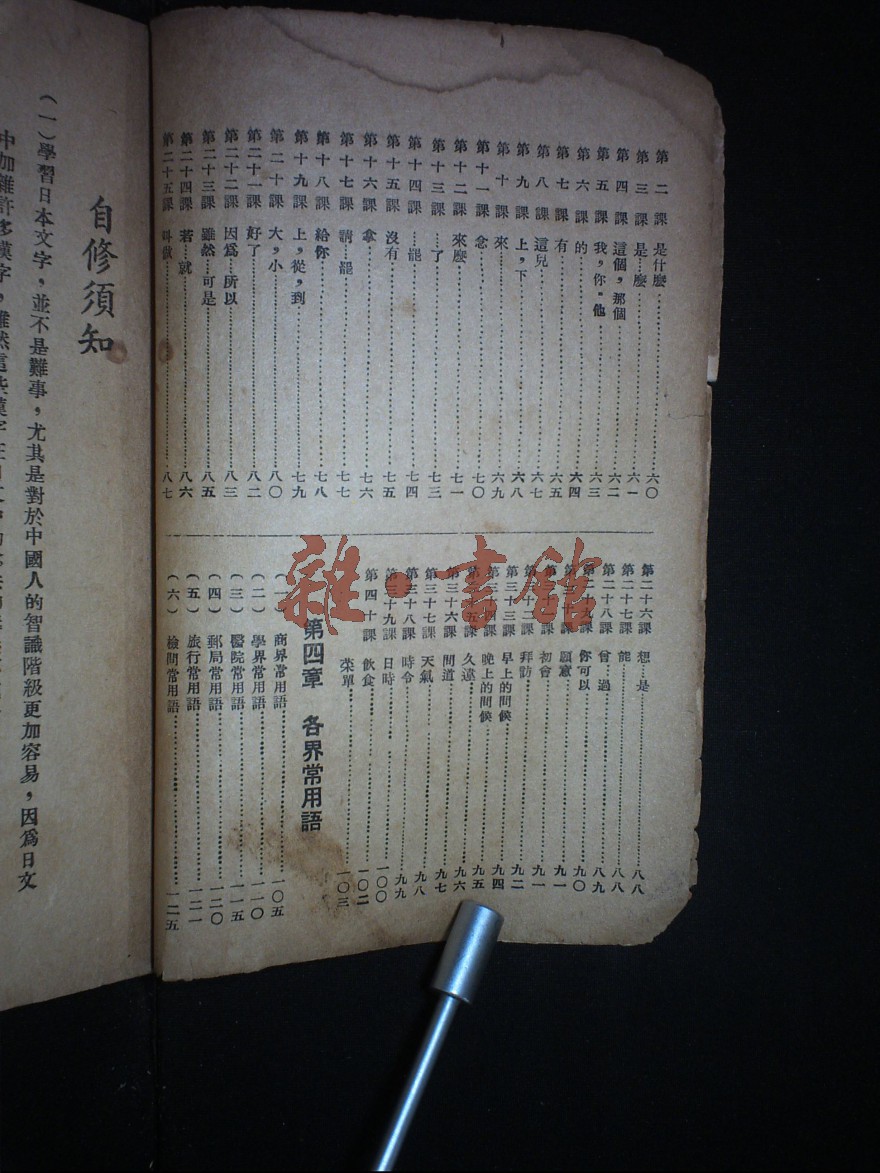 第二課 是什麼……六〇
第三課 是…麼……六一
第四課 這個，那個……六二
第五課 我，你，他……六三
第六課 的……六四
第七課 有……六五
第八課 這兒……六七
第九課 上，下……六八
第十課 來……六九
第十一課 念……七〇
第十二課 來麼……七一
第十三課 …了……七三
第十四課 …罷……七四
第十五課 沒有……七五
第十六課 拿……七六
第十七課 請…罷……七七
第十八課 給你……七八
第十九課 上，從，到……七九
第二十課 大，小……八〇
第二十一課 好了……八二
第二十二課 因爲…所以……八三
第二十三課 雖然…可是……八五
第二十四課 若…就……八六
第二十五課 叫做……八七
第二十六課 想…是……八八
第二十七課 能……八八
第二十八課 曾…過……八九
第二十九課 你可以……九〇
第三十課 願意……九一
第三十一課 初會……九一
第三十二課 拜訪……九二
第三十三課 早上的問候……九四
第三十四課 晚上的問候……九五
第三十五課 久違……九六
第三十六課 問道……九七
第三十七課 天氣……九八
第三十八課 時令……九九
第三十九課 日時……一〇〇
第四十課 飲食……一〇二
菜單……一〇三
第四章 各界常用語
（一）商界常用語……一〇五
（二）學界常用語……一一〇
（三）醫院常用語……一一五
（四）郵局常用語……一二〇
（五）旅行常用語……一二一
（六）檢問常用語……一二五
自修須知
（一）學習日本文字，並不是難事，尤其是對於中國人的智識階級更加容易，因爲日文
中加雜許多漢字，雖然這些漢字在日文中的
雜·書館